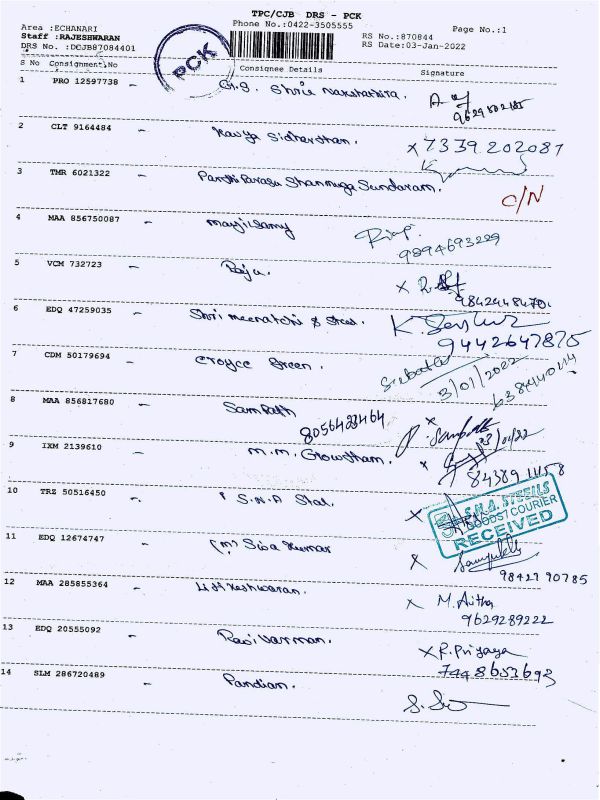 TPC/CJB DRS - PCK
Phone No.:0422-3505555
Area :ECHANARI
Staff :RAJESHWARAN
DRS No. :DCJB87084401
PCK
RS No.:870844
RS Date:03-Jan-2022
Page No.:1
S No Consignment,No Consignee Details Signature
1 PRO 12597738 - G.S. Shrie Nakshathira.
9629802185
2 CLT 9164484 - Kavya Sidharthan. x 7339202087
3 TMR 6021322 - Shanmuga Sundaram. C/N
4 MAA 856750087 - Mayilsamy
9894693229
5 VCM 732723 - Raju. x
9842448470.
6 EDQ 47259035 - Shri Meenatchi & Steel.
9442647875
7 CDM 50179694 - Croyce Green.
3/01/2022
8 MAA 856817680 - Sampath
8056423464
9 IXM 2139610 - M.M. Gowtham. x
10 TRZ 50516450 - S.N.A Stal. x
S.N.A. STEELS
GOODS / COURIER
RECEIVED
11 EDQ 12674747 - (m) Siva Kumar x
98427 90785
12 MAA 285855364 - x M. Aitha
9629289222
13 EDQ 20555092 - Ravi Varman. x P. Priyaya
7448653693
14 SLM 286720489 - Pandian.